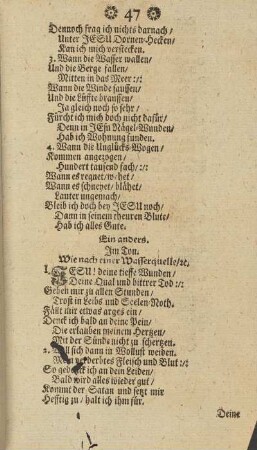 47
Dennoch frag ich nichts darnach/
Unter JESU Dornen-Hecken/
Kan ich mich verstecken.
3. Wann die Wasser wallen/
Und die Berge fallen/
Mitten in das Meer:/:
Wann die Winde saussen/
Und die Lüffte braussen/
Ja gleich noch so sehr/
Fürcht ich mich doch nicht dafür/
Denn in JEsu Nägel-Wunden/
Hab ich Wohnung funden.
4. Wann die Unglücks-Wogen/
Kommen angezogen/
Hundert tausend fach/:/:
Wann es regnet/wehet/
Wann es schneyet/ blähet/
Lauter ungemach/
Bleib ich doch bey JESU noch/
Dann in seinem theuren Blute/
Hab ich alles Gute.
Ein anders.
Im Ton.
Wie nach einer Wasserquelle/ꝛc.
1. JESU! deine tieffe Wunden/
Deine Qual und bittrer Tod:/:
Geben mir zu allen Stunden/
Trost in Leibs und Seelen-Noth.
Fällt mir etwas arges ein/
Denck ich bald an deine Pein/
Die erlauben meinem Hertzen/
Mit der Sünde nicht zu schertzen.
2. Will sich dann in Wollust weiden.
Mein verderbtes Fleisch und Blut:/:
So gedenck ich an dein Leiden/
Bald wird alles wieder gut/
Kommt der Satan und setzt mir
Hefftig zu/ halt ich ihm für.
Deine